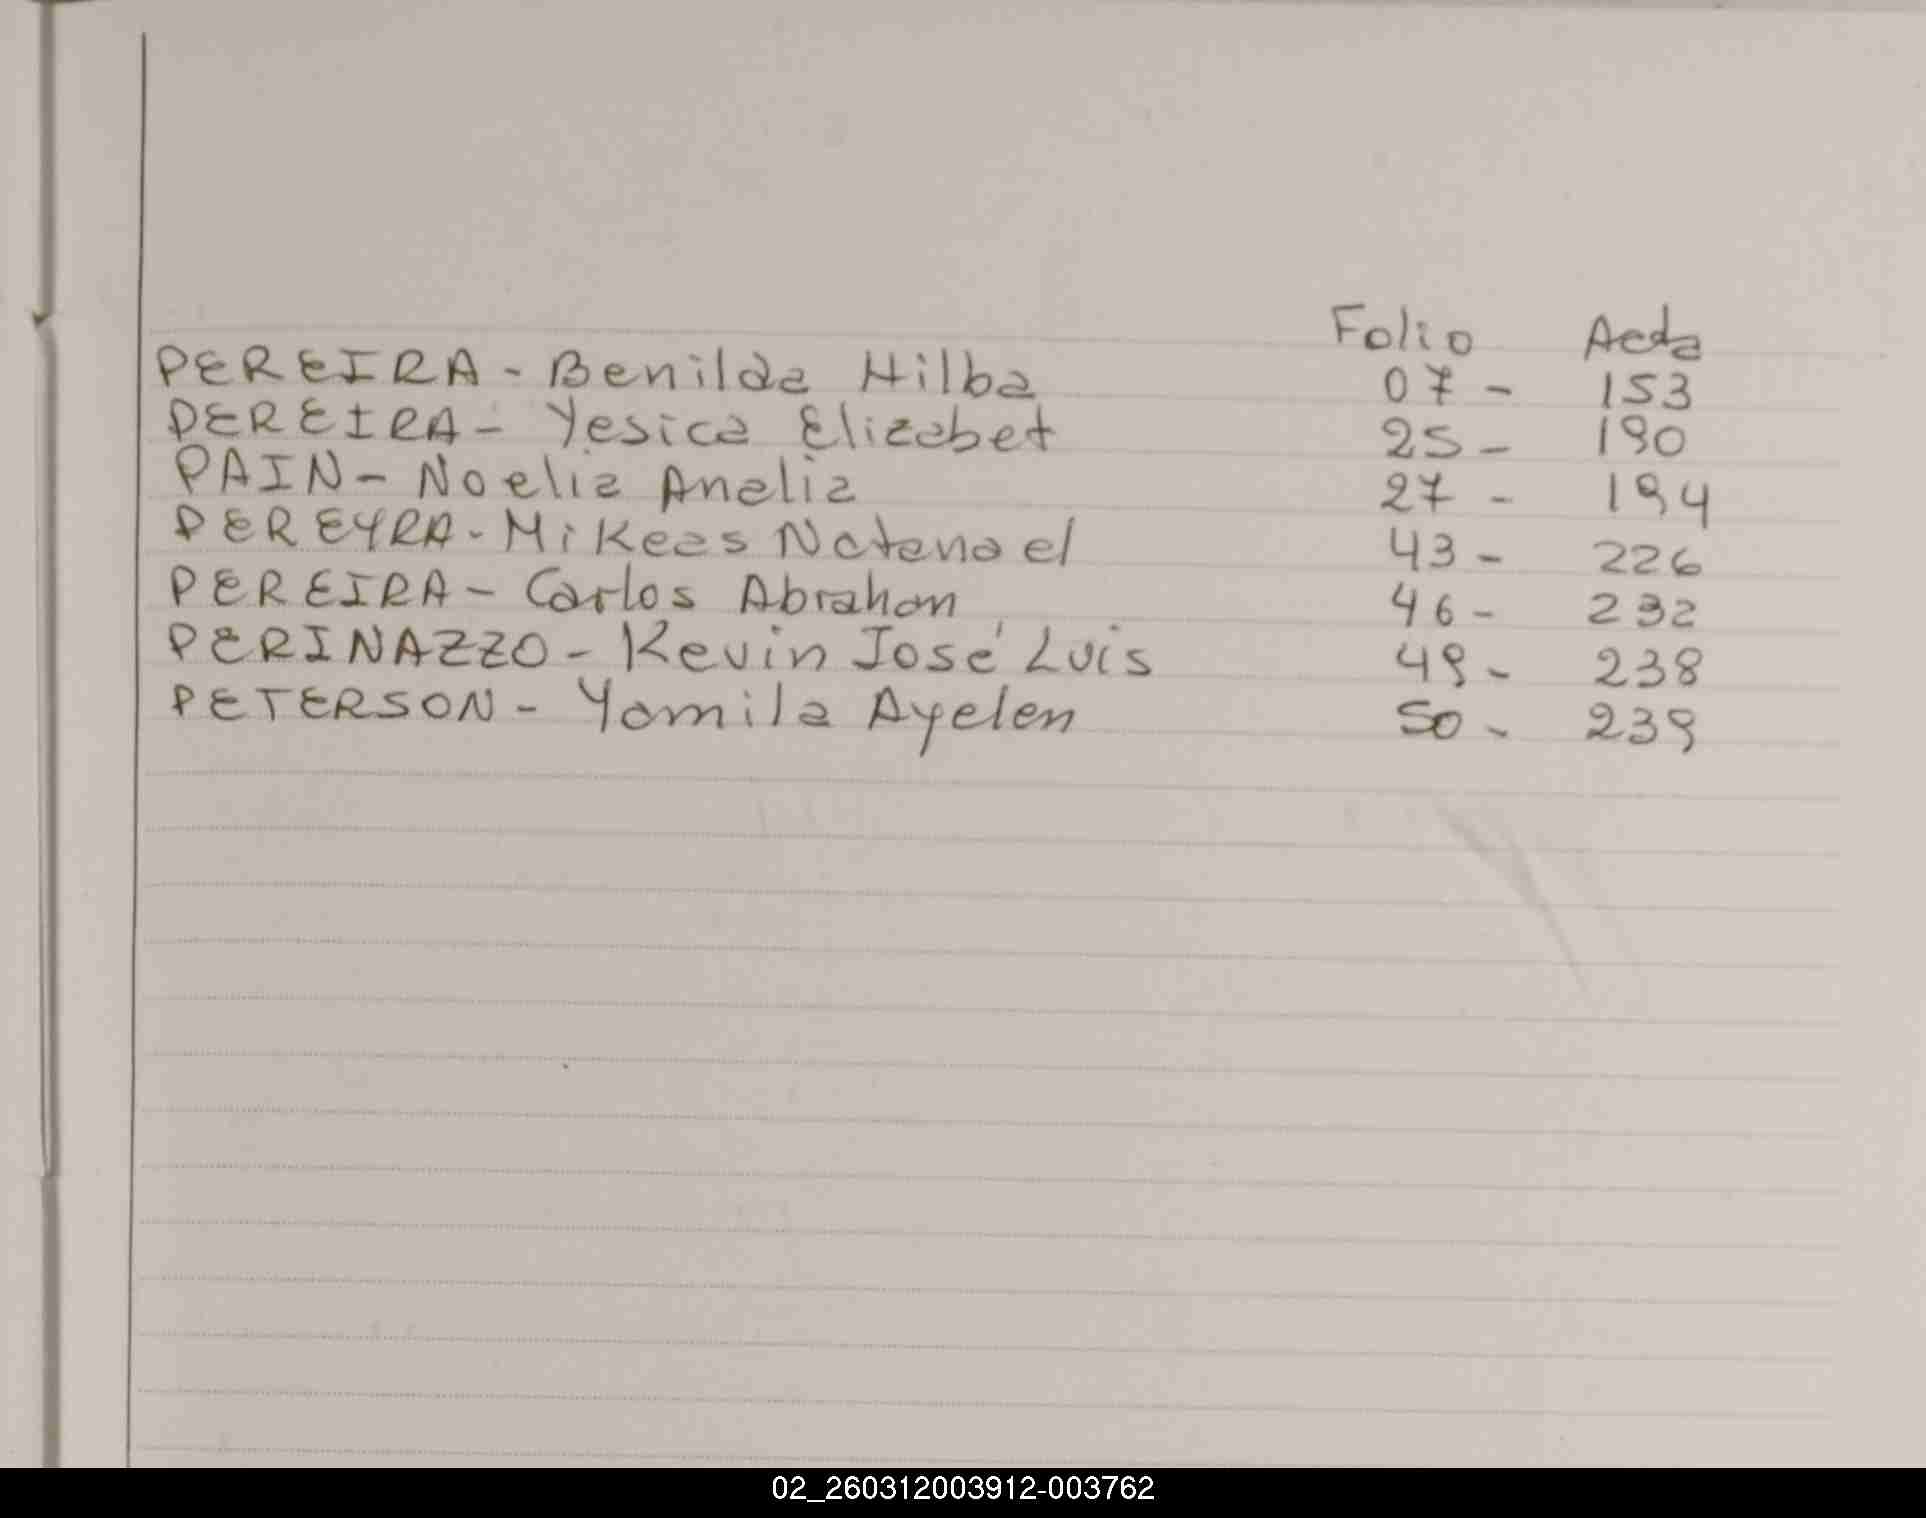 Folio Acta
PEREIRA - Benilda Hilba 07 - 153
PEREIRA - Yesica Elizabet 25 - 190
PAIN - Noelia Analia 27 - 194
PEREYRA - Mikeas Natanael 43 - 226
PEREIRA - Carlos Abrahan 46 - 232
PERINAZZO - Kevin José Luis 49 - 238
PETERSON - Yamila Ayelen 50 - 239
02_260312003912-003762